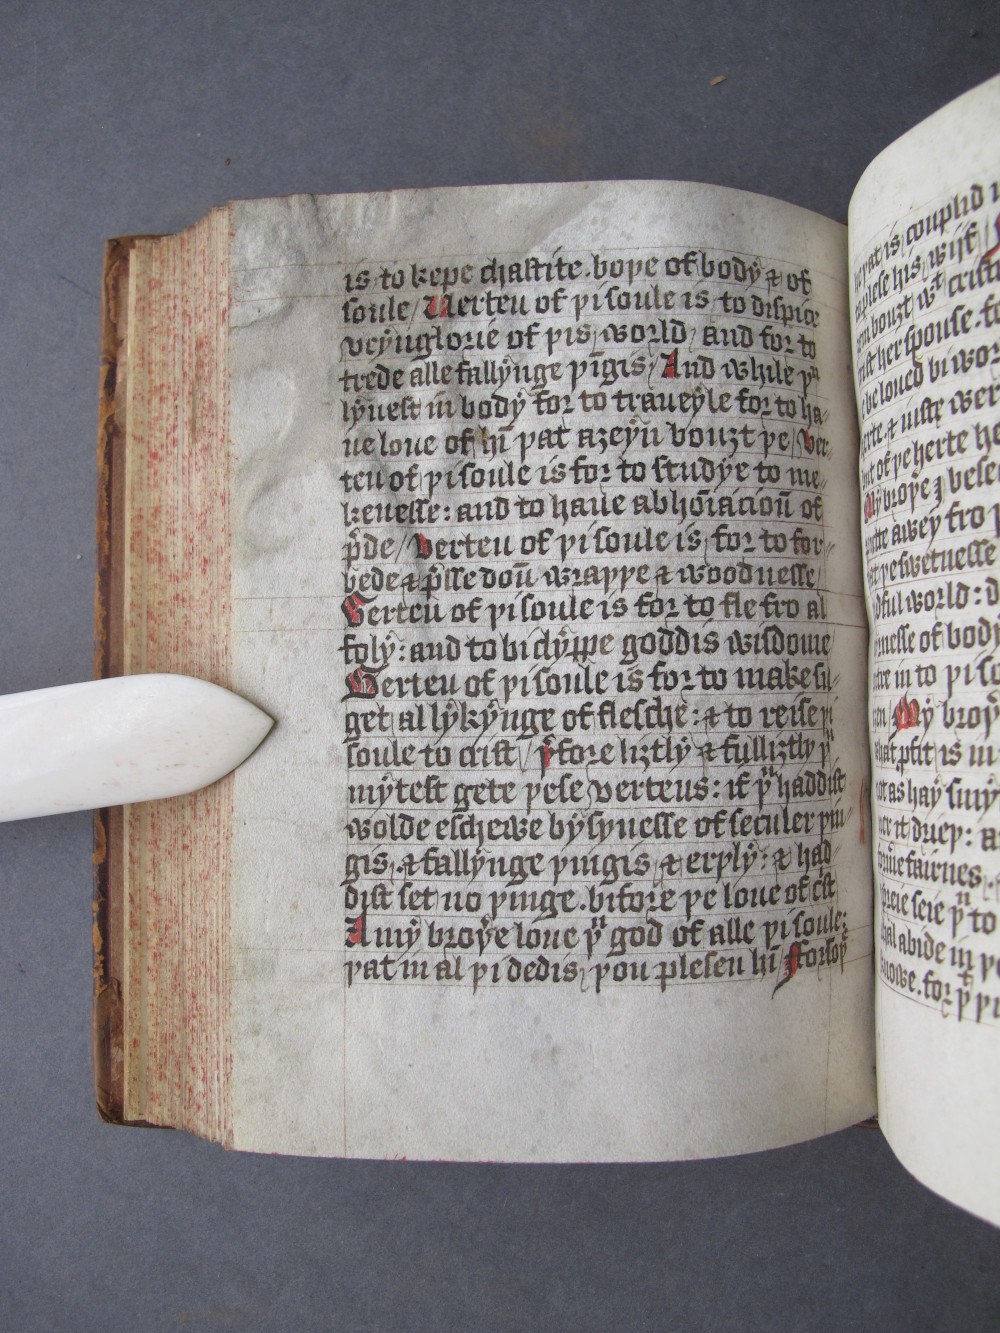 is to kepe chastite. boþe of body & of
soule / Uerteu of þi soule is to dispice
veynglorie of þis world / and for to
trede alle fallynge þīgis / And while þᵘ
lyuest in body for to traueyle for to ha-
ue loue of hī þat aȝeyn bouȝt þe / Ver-
teu of þi soule is for to studye to me-
kenesse : and to haue abhoīacioū of
pͥde / Verteu of þi soule is for to for-
bede & pͥsse doū wraþþe & woodnesse /
Verteu of þi soule is for to fle fro al
foly : and to biclyppe goddis wisdome
Verteu of þi soule is for to make su-
get al lykynge of flesche : & to reise þi
soule to crist / þͤfore liȝtly & fulliȝtly þᵘ
myȝtest gete þese verteus : if þᵘ haddist
wolde eschewe bysynesse of seculer þin-
gis . & fallynge þingis & erþly : & had-
dist set no þinge . bifore þe loue of cͥst
A my broþͤe loue þᵘ god of alle þi soule :
þat in al þi dedis þou plesen hī / Forsoþ
þat is couplid
to plese his wijf /
bouȝt wᵗ crist
her spouse . fo
be loued bi wor
& iuste wer
but of þe herte he
My broþͤe ȝ bese
putte awey fro þ
þe swetnesse
ful world : d
nesse of body
in to þi so
My broþ
þat pͥfit is in
as hay smy
it drieþ : a
fairnes .
seie þᵘ to
abide in þe
knowe . for þᵗ þi